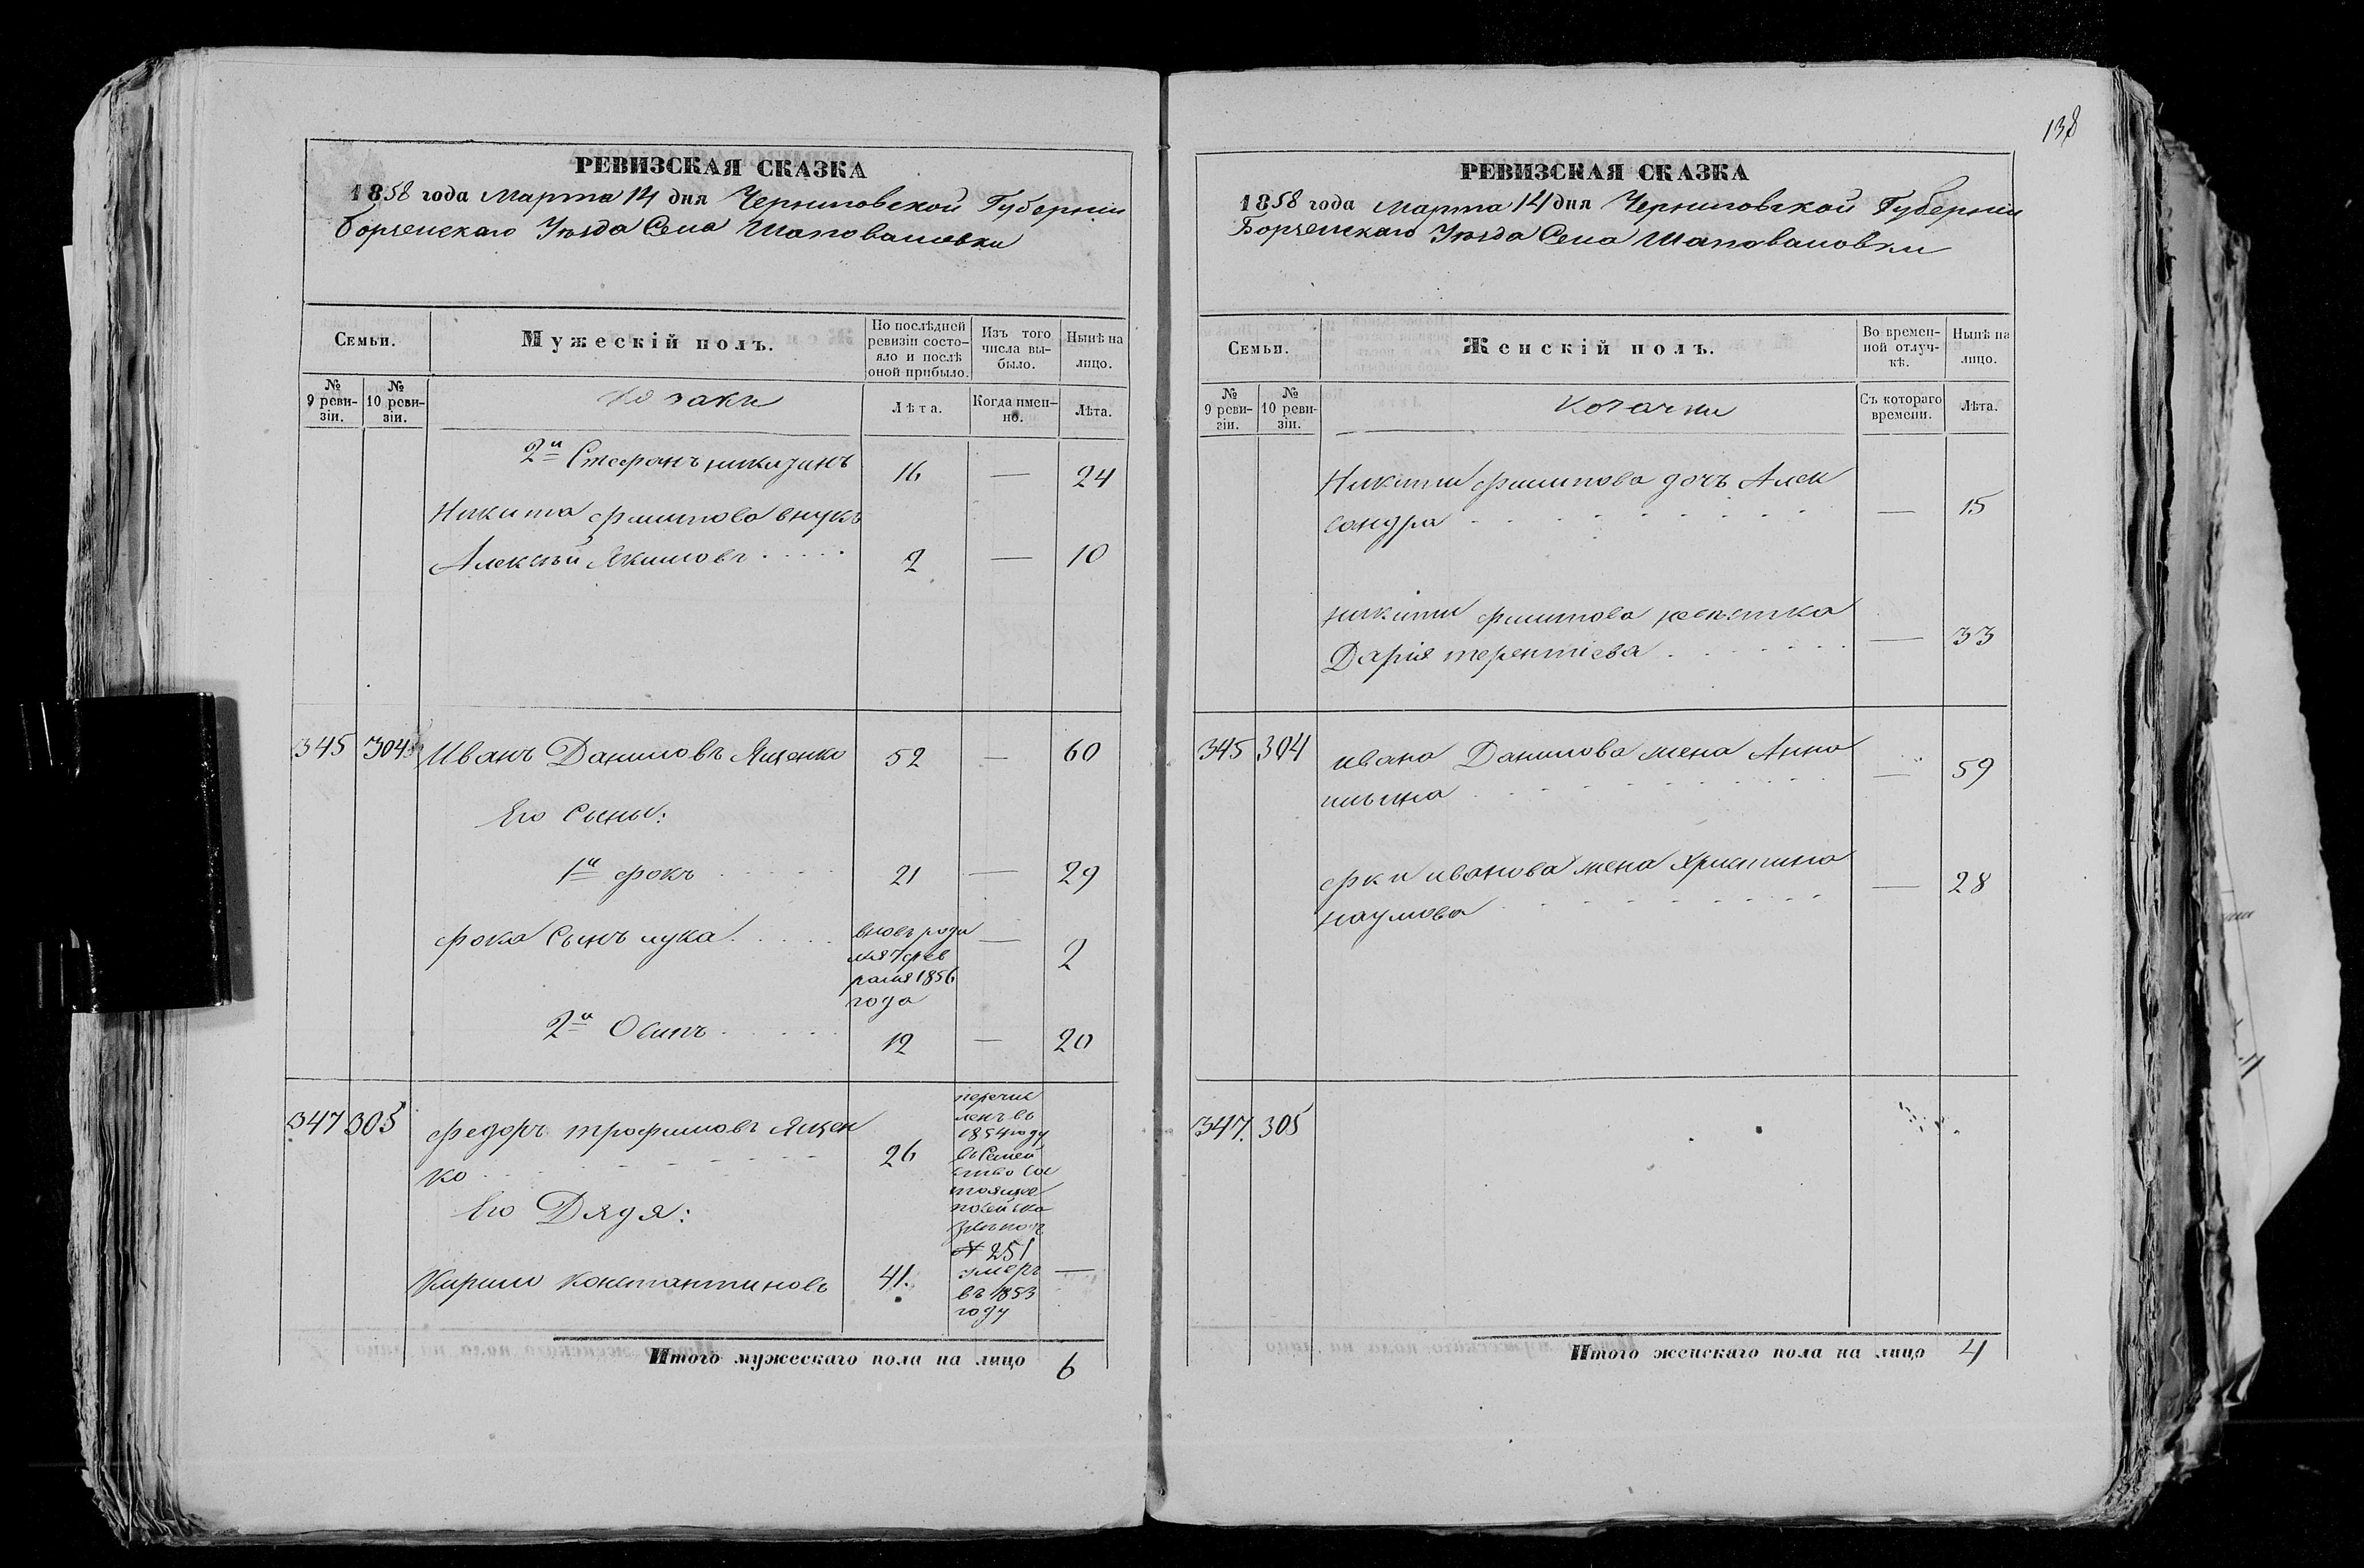 РЕВИЗСКАЯ СКАЗКА
1858 года Марта 14 дня Черниговской Губерніи
Борзенскаго Уѣзда Села Шаповаловки
Семьи.
Мужескій полъ.
По послѣдней ревизіи состояло и послѣ оной прибыло.
Изъ того числа выбыло.
Ныне на лицо.
№ 9 ревизіи.
№ 10 ревизіи.
Козаки
Лѣта.
Когда именно.
Лѣта.
2й Стефанъ 16 — 24
Никита Филипова внукъ
Алексѣй Якимовъ 2 — 10
345 304 Иванъ Даниловъ Ященко 52 — 60
Его Сыны:
1й Фокъ 21 — 29
Фока Сынъ Лука вновь роди — 2
лся 7 фев
раля 1856
года
2й Осипъ 12 — 20
347 305 Федоръ Трофимовъ Ящен
ко 26
перечис
ленъ въ
1854 году
въ Семей
ство сос
тоящее
по сей ска
зке подъ
№ 251
Его Дядя:
Кирило Константиновъ 41. умеръ —
въ 1853
году
Итого мужескаго пола на лицо 6
138
РЕВИЗСКАЯ СКАЗКА
1858 года Марта 14 дня Черниговской Губерніи
Борзенскаго Уѣзда Села Шаповаловки
Семьи.
Женскій полъ.
Во временной отлучкѣ.
Нынѣ на лицо.
№ 9 ревизіи.
№ 10 ревизіи.
Козачки
Съ котораго времени.
Лѣта.
Никиты Филипова дочь Алек
сандра — 15
Никиты Филипова невѣстка
Дарія Терентіева — 33
345 304 Ивана Данилова жена Анна
Ильина — 59
Фки Иванова жена Христина
Наумова — 28
347. 305
Итого женскаго пола на лицо 4